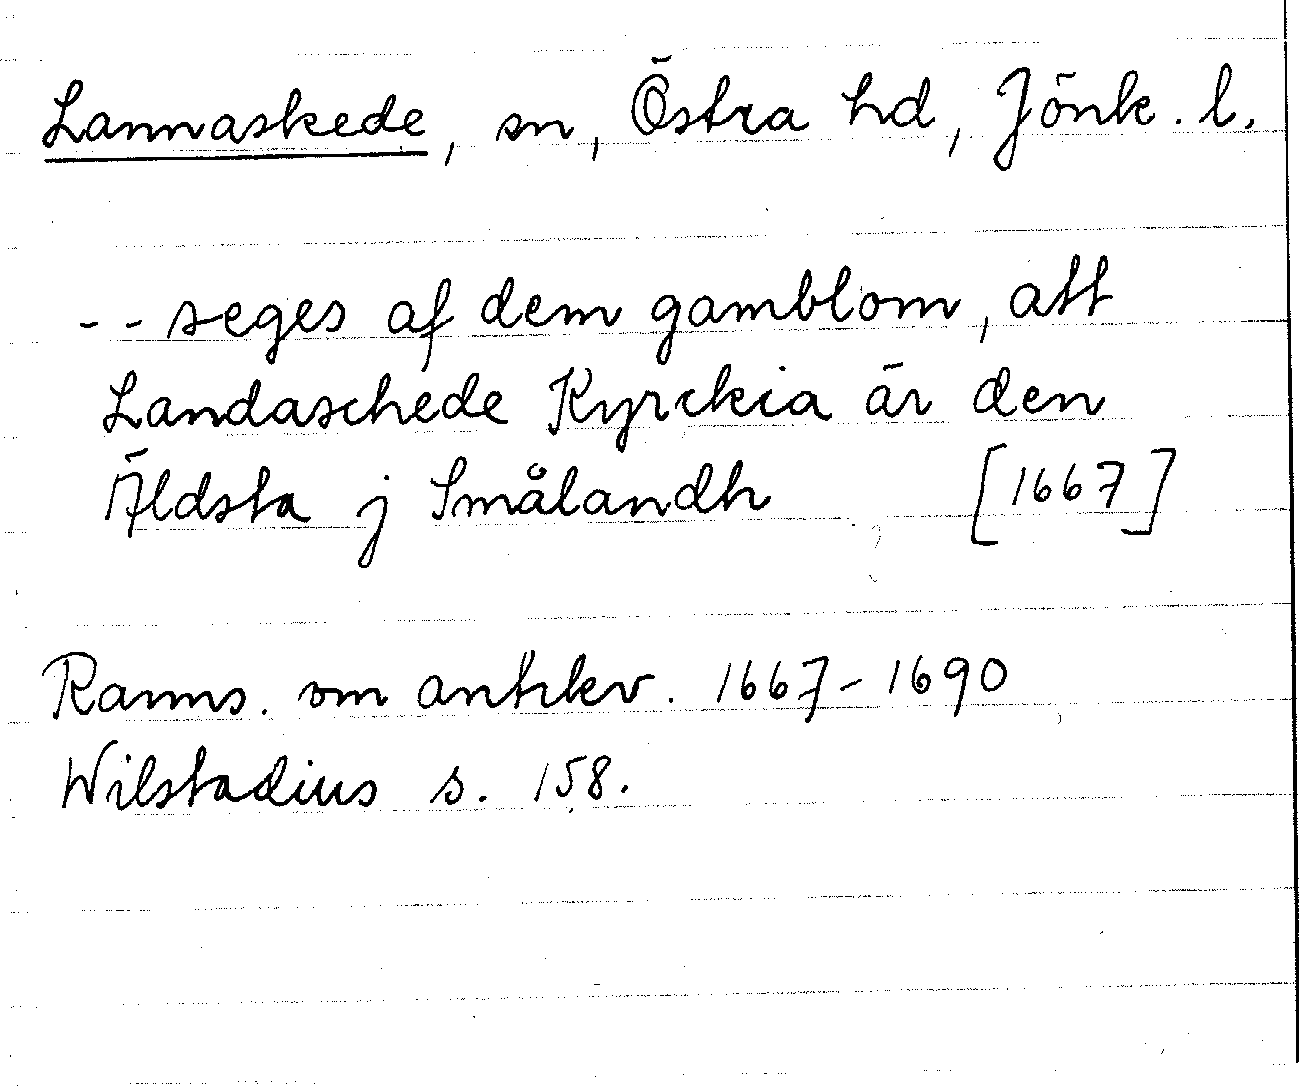 Lannaskede, sn, Östra hd, Jönk. l.
-- seges af dem gamblom, att
Landaschede Kyrckia är den
Äldsta j Smålandh [1667]
Ranns. om antikv. 1667-1690
Wilstadius s. 158.